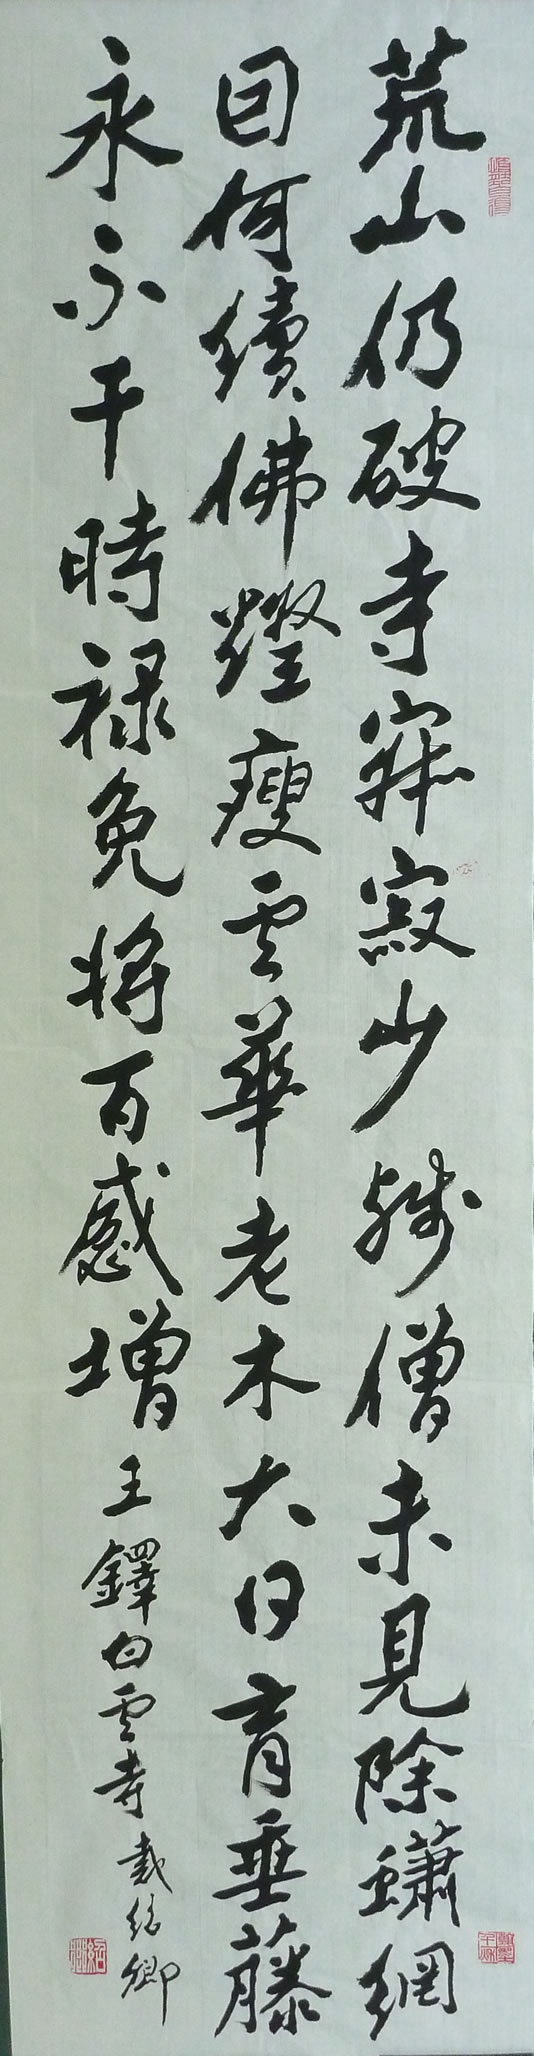 荒山仍破寺寂寂少殘僧未見除蠨網
因何續佛燈瘦雲華老木大日育垂藤
永不干時祿免將百感增
王鐸白雲寺戴紹卿